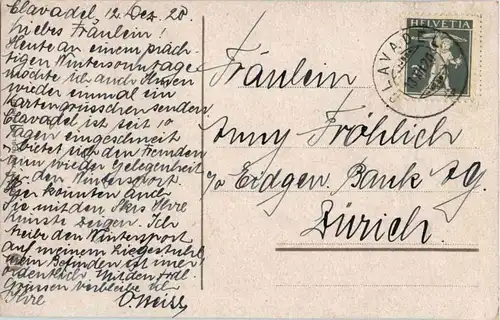 Clavadel, 12. Dez. 28.
Liebes Fräulein!
Heute an einem präch-
tigen Wintersonntage
möchte ich auch Ihnen
wieder einmal ein
Kartengrüsschen senden.
Clavadel ist seit 10
Tagen eingeschneit
& bietet sich den Fremden
nun wieder Gelegenheit
für den Wintersport.
Hier könnten auch
Sie mit den Skis Ihre
Künste zeigen. Ich
treibe den Wintersport
auf meinem Liegestuhl.
Mein Befinden ist immer
ordentlich. Mit den frdl.
Grüssen verbleibe ich
Ihre
HELVETIA
CLAVADEL
Fräulein
Anny Fröhlich
c/o Eidgen. Bank A.G.
Zürich.